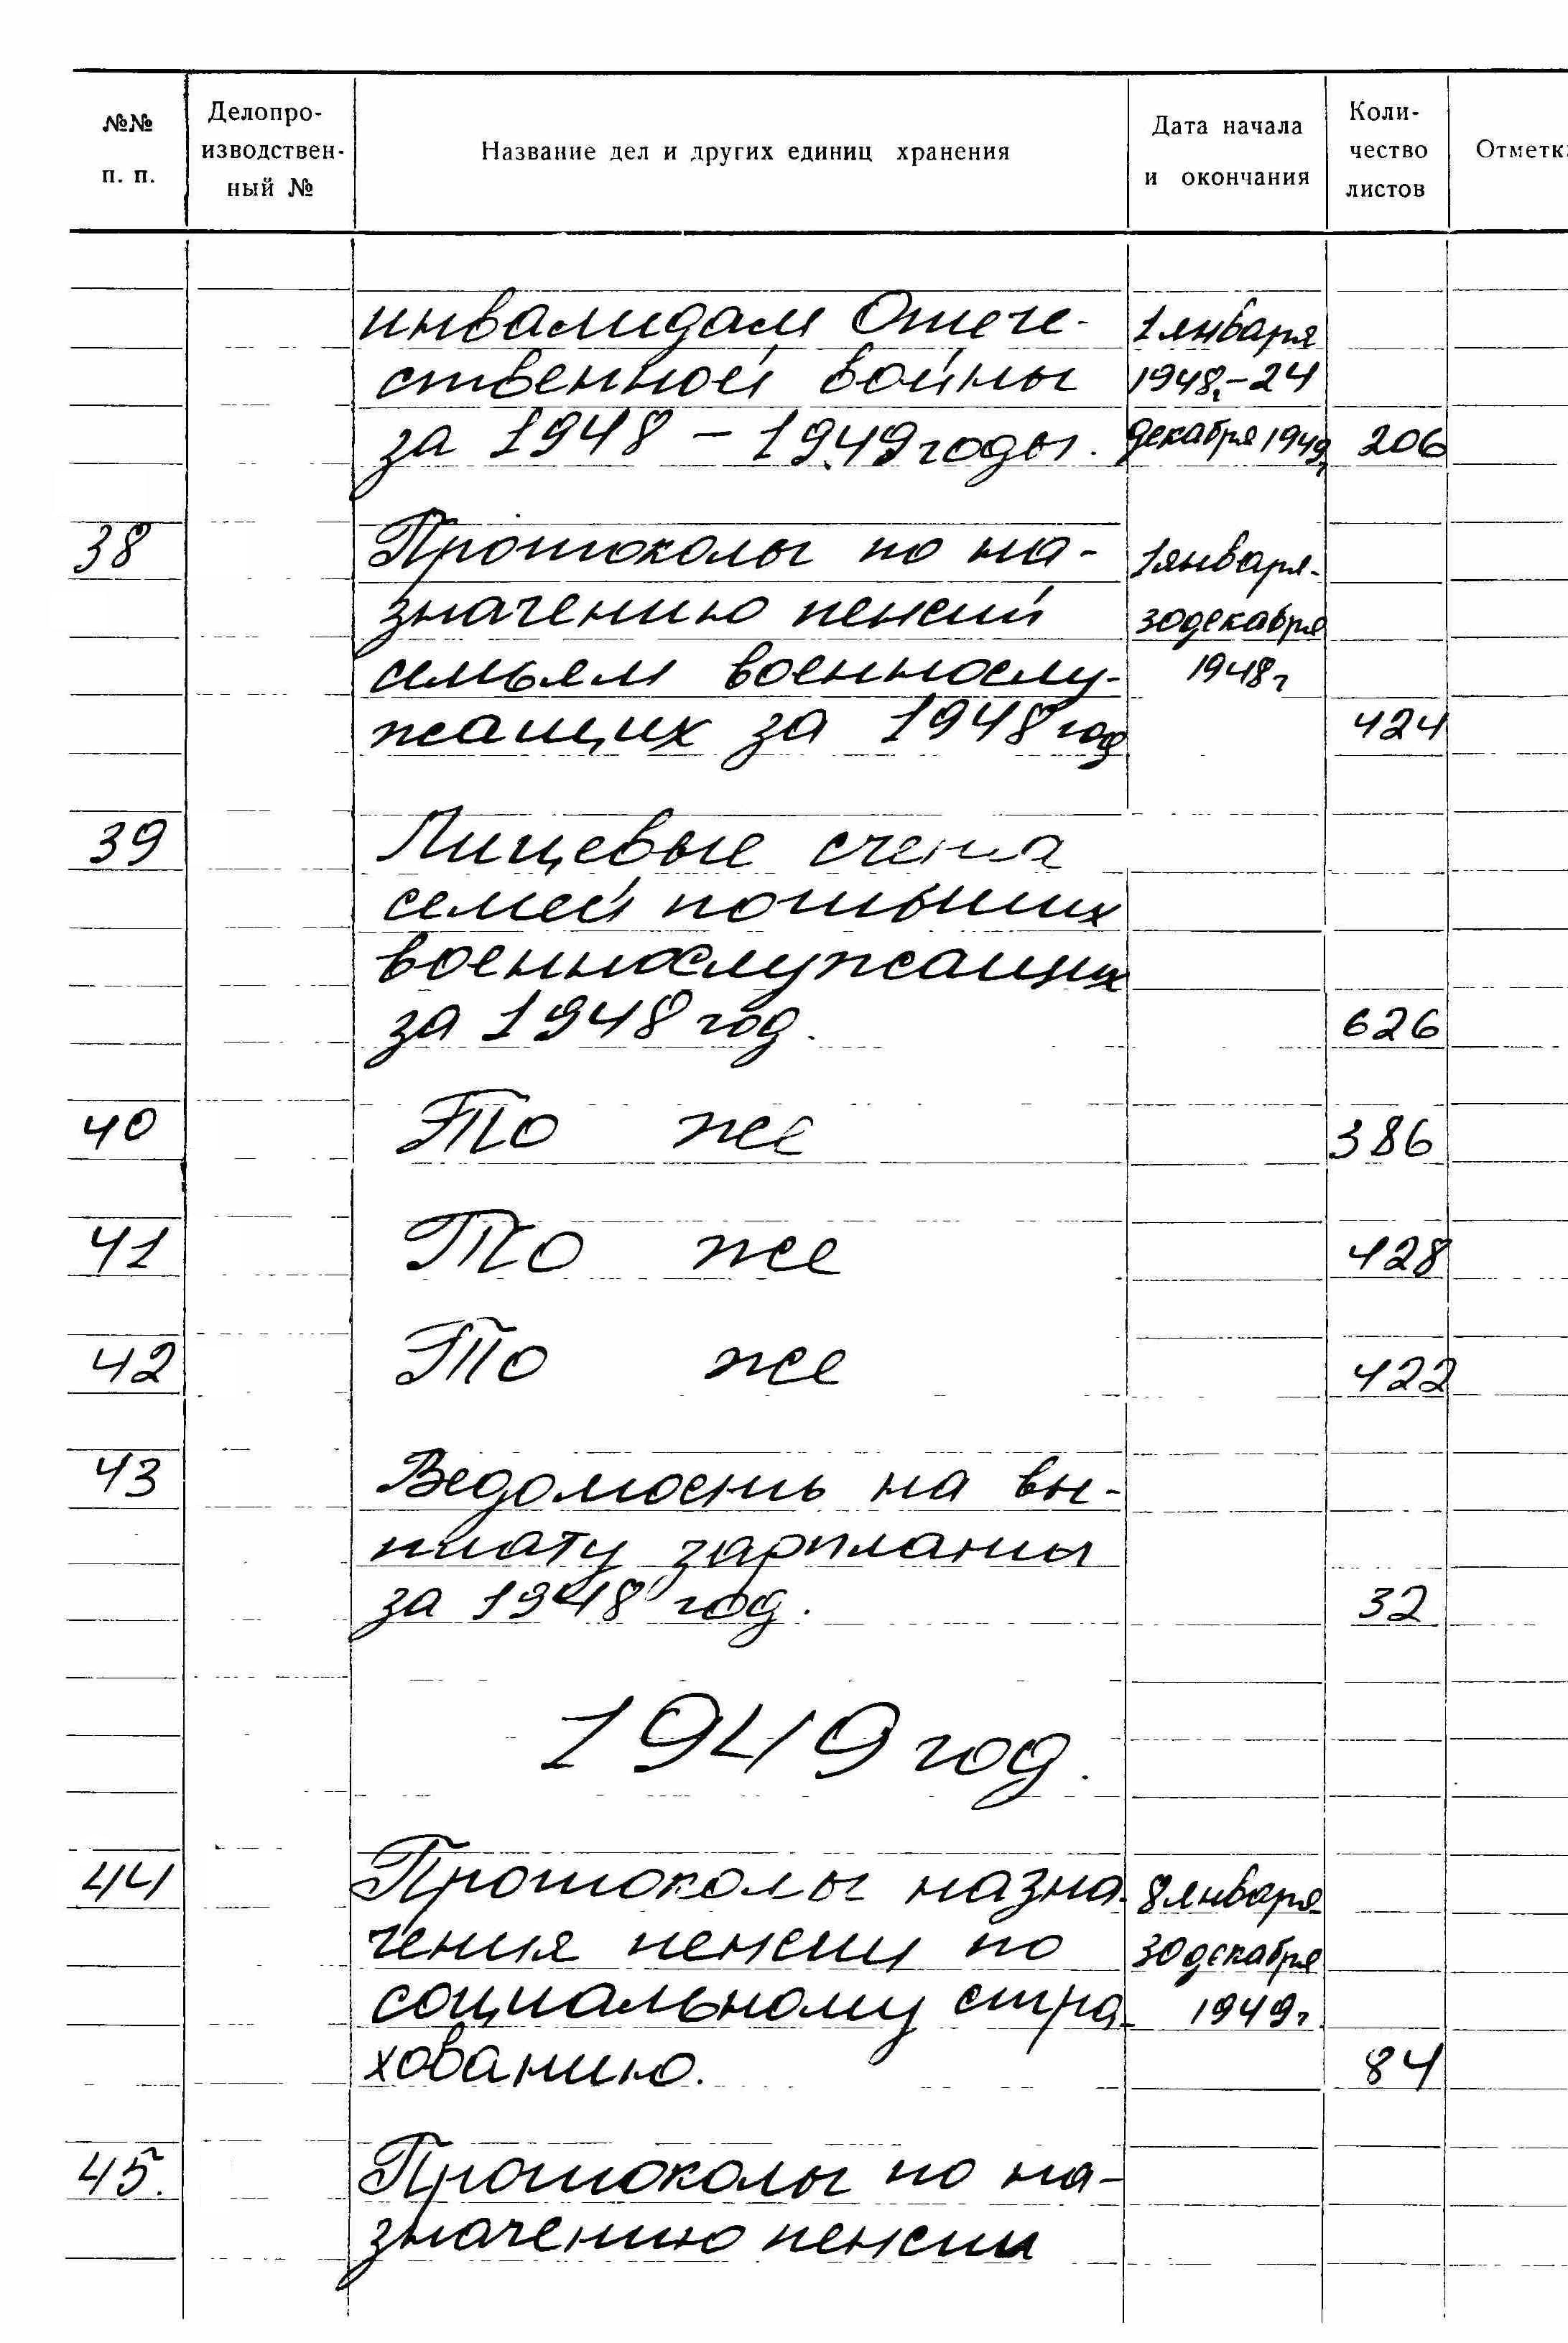 №№ п. п.
Делопро-
изводствен-
ный №
Название дел и других единиц хранения
Дата начала
и окончания
Коли-
чество
листов
Отметк
инвалидам Отече- 1 января
ственной войны 1948г.-24
за 1948 - 1949 годы. декабря 1949г 206
38 Протоколы по на- 1 января-
значению пенсий 30 декабря
семьям военнослу- 1948г
жащих за 1948 год 424
39 Лицевые счета
семей погибших
военнослужащих
за 1948 год. 626
40 То же 386
41 То же 428
42 То же 422
43 Ведомость на вы-
плату зарплаты
за 1948 год. 32
1949 год.
44 Протоколы назна- 8 января-
чения пенсии по 30 декабря
социальному стра- 1949г.
хованию. 84
45. Протоколы по на-
значению пенсии